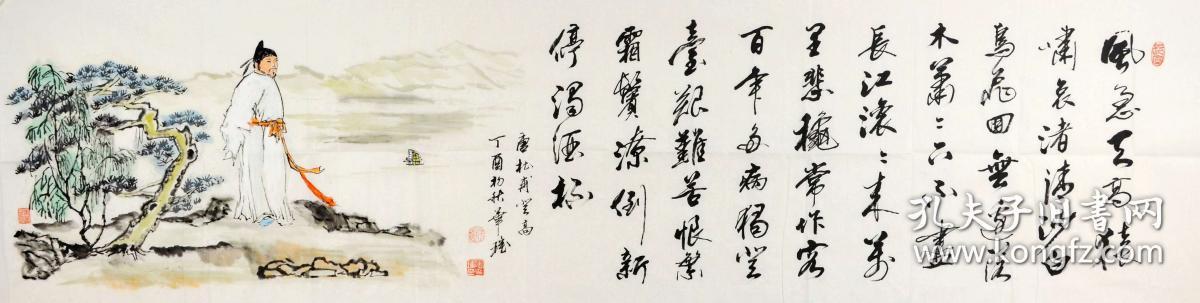 風急天高猿
嘯哀渚清沙白
鳥飛回無邊落
木蕭々下不盡
長江滾々來萬
里悲穐常作客
百年多病獨登
臺艱難苦恨繁
霜鬢潦倒新
停濁酒杯
唐杜甫登高
丁酉初秋華
孔夫子旧书网
www.kongfz.com